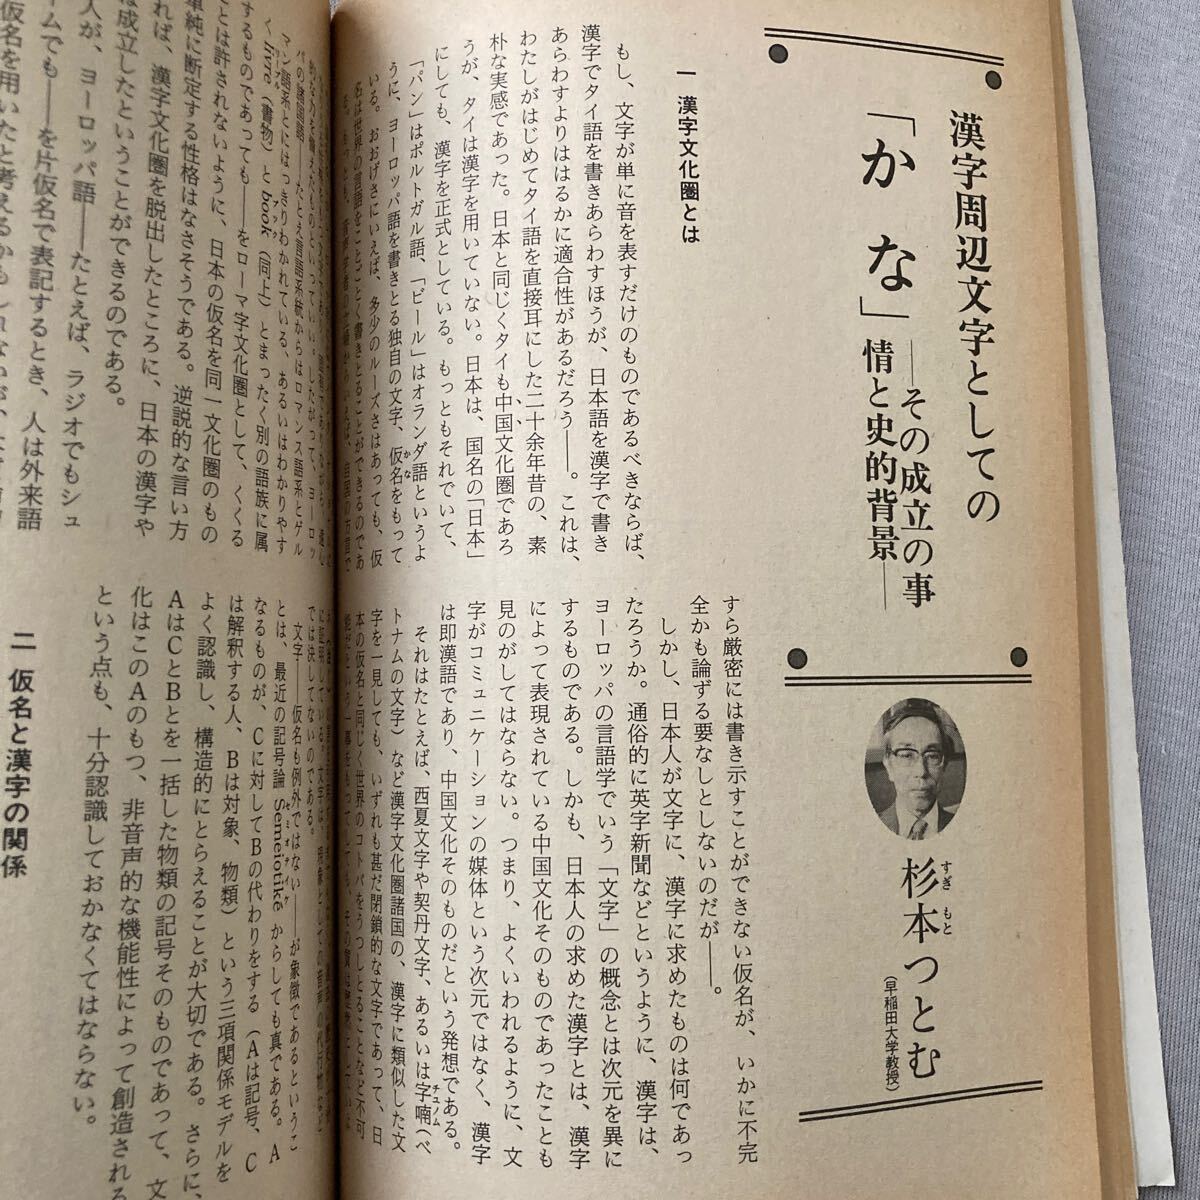 漢字周辺文字としての
「かな」
―その成立の事
情と史的背景―
杉本つとむ
すぎ もと
(早稲田大学教授)
一 漢字文化圏とは
もし、文字が単に音を表すだけのものであるべきならば、
漢字でタイ語を書きあらわすほうが、日本語を漢字で書き
あらわすよりははるかに適合性があるだろう――。これは、
わたしがはじめてタイ語を直接耳にした二十余年昔の、素
朴な実感であった。日本と同じくタイも中国文化圏であろ
うが、タイは漢字を用いていない。日本は、国名の「日本」
にしても、漢字を正式としている。もっともそれでいて、
「パン」はポルトガル語、「ビール」はオランダ語というよ
うに、ヨーロッパ語を書きとる独自の文字、仮名をもって
かな
いる。おおげさにいえば、多少のルーズさはあっても、仮
名は世界の言語をことごとく書きとることができるのであ
すら厳密には書き示すことができない仮名が、いかに不完
全かも論ずる要なしとしないのだが――。
しかし、日本人が文字に、漢字に求めたものは何であっ
たろうか。通俗的に英字新聞などというように、漢字は、
ヨーロッパの言語学でいう「文字」の概念とは次元を異に
するものである。しかも、日本人の求めた漢字とは、漢字
によって表現されている中国文化そのものであったことも
見のがしてはならない。つまり、よくいわれるように、文
字がコミュニケーションの媒体という次元ではなく、漢字
は即漢語であり、中国文化そのものだという発想である。
それはたとえば、西夏文字や契丹文字、あるいは字喃(ベ
チュノム
トナムの文字)など漢字文化圏諸国の、漢字に類似した文
字を一見しても、いずれも甚だ閉鎖的な文字であって、日
本の仮名と同じく世界のコトバをうつしとることなど不可
パの諸国語――たとえ言語系統からはロマンス語系とゲル
マン語系とにはっきりわかれている、あるいはわかりやす
く livre(書物)と book(同上)とまったく別の語族に属
リーブル
ブック
するものであっても――をローマ字文化圏として、くくる
ことは許されないように、日本の仮名を同一文化圏のもの
単純に断定する性格はなさそうである。逆説的な言い方
れば、漢字文化圏を脱出したところに、日本の漢字や
は成立したということができるのである。
人が、ヨーロッパ語――たとえば、ラジオでもシュ
ムでも――を片仮名で表記するとき、人は外来語
では決してないのである。
文字――仮名も例外ではない――が象徴であるというこ
とは、最近の記号論 Semeiotike からしても真である。A
セミオティケ
なるものが、Cに対してBの代わりをする(Aは記号、C
は解釈する人、Bは対象、物類)という三項関係モデルを
よく認識し、構造的にとらえることが大切である。さらに、
AはCとBとを一括した物類の記号そのものであって、文
化はこのAのもつ、非音声的な機能性によって創造される
という点も、十分認識しておかなくてはならない。
二 仮名と漢字の関係